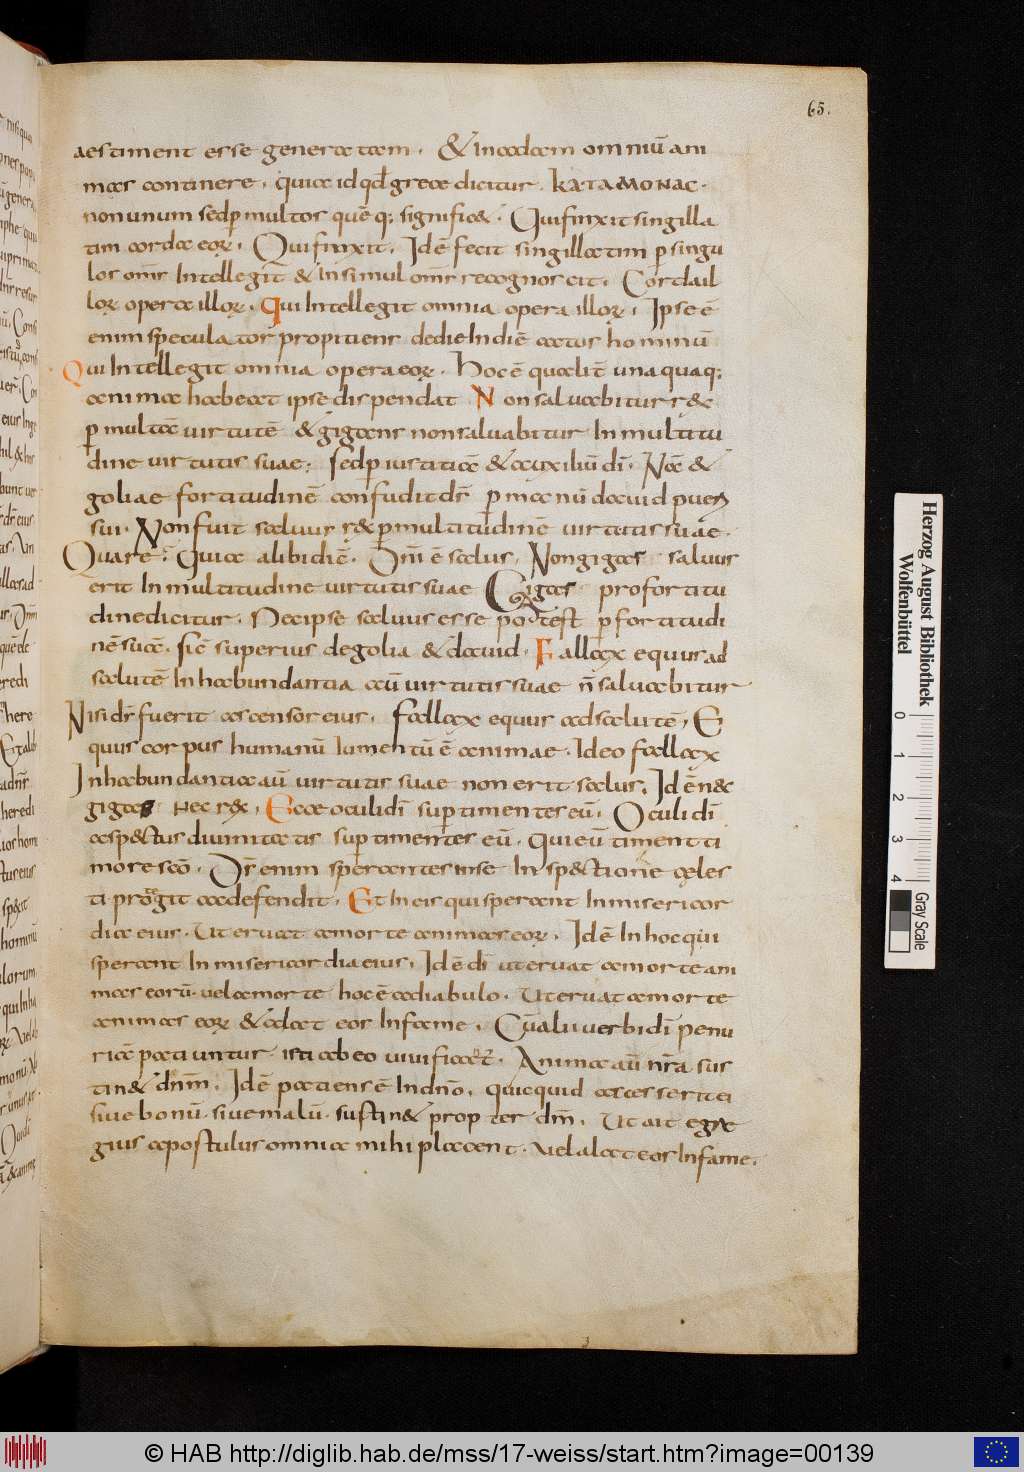 65.
aestiment esse generata tam. & in adam omniū ani
mas continere. quia id qđ grece dicitur. KATAMONAC.
non unum sed p̄ multos quē q; signific&. Qui finxit singilla
tim corda eoꝝ. Qui finxit. Idē fecit singillatim p singu
los om̄s Intellegit & insimul om̄s recognoscit. Corda il
loꝝ opera illoꝝ. Qui Intellegit omnia opera illoꝝ. Ipse ē
enim speculator propitiens de die In diē actus hominū
Qui Intellegit omnia opera eoꝝ. Hoc ē qualitē unaquaq;
anima habeat ipse dispendat Non saluabitur r&
p multā uirtutē & gigans non saluabitur In multitu
dine uirtutis suae; sed p iustitiā & auxiliū dī. Nā &
goliae fortitudinē confudit dr̄ p manū dauid pueri
sui. Non fuit saluus r& p multitudinē uirtutis suae.
Quare? Quia alibi diē. Dnī ē salus. Non gigas saluus
erit In multitudine uirtutis suae Gigas pro fortitu
dine dicitur. Nec ipse saluus esse potest p fortitudi
nē suā. sic superius de golia & dauid. Fallax equus ad
salutē In habundantia aū uirtutis suae n̄ saluabitur
Nisi dr̄ fuerit ascensor eius. Fallax equus ad salutē, E
quus corpus humanū Iumentū ē animae. Ideo fallax
In habundantia aū uirtutis suae non erit salus. Idē nec
gigas nec r&. Ecce oculi dī sup timentes eū. Oculi dī
asp&tus diuinitatis sup timentes eū. qui eū timent ti
more scō. Dr̄ enim sperantes in se In sp&tione cęles
ti prog̅it ac defendit. Et In eis qui sperant In misericor
dia eius. Ut eruat a morte animas eoꝝ. Idē In hoc qui
sperant In misericordia eius. Idē dī ut eruat a morte ani
mas eorū. uel a morte hoc ē a diabulo. Ut eruat a morte
animas eoꝝ & adat eos In fame. Cū alii uerbi dī penu
riā patiuntur. isti ab eo uiuificat̄. Anima aū nr̄a sus
tin& dnm̄. Idē patiens ē In dn̄o. quicquid accesserit ei
siue bonū. siue malū. sustin& propter dm̄. Ut ait egre
gius apostulus omnia mihi placent. uel alat eos In fame.
Herzog August Bibliothek
Wolfenbüttel
0 1 2 3 4
Gray Scale
© HAB http://diglib.hab.de/mss/17-weiss/start.htm?image=00139